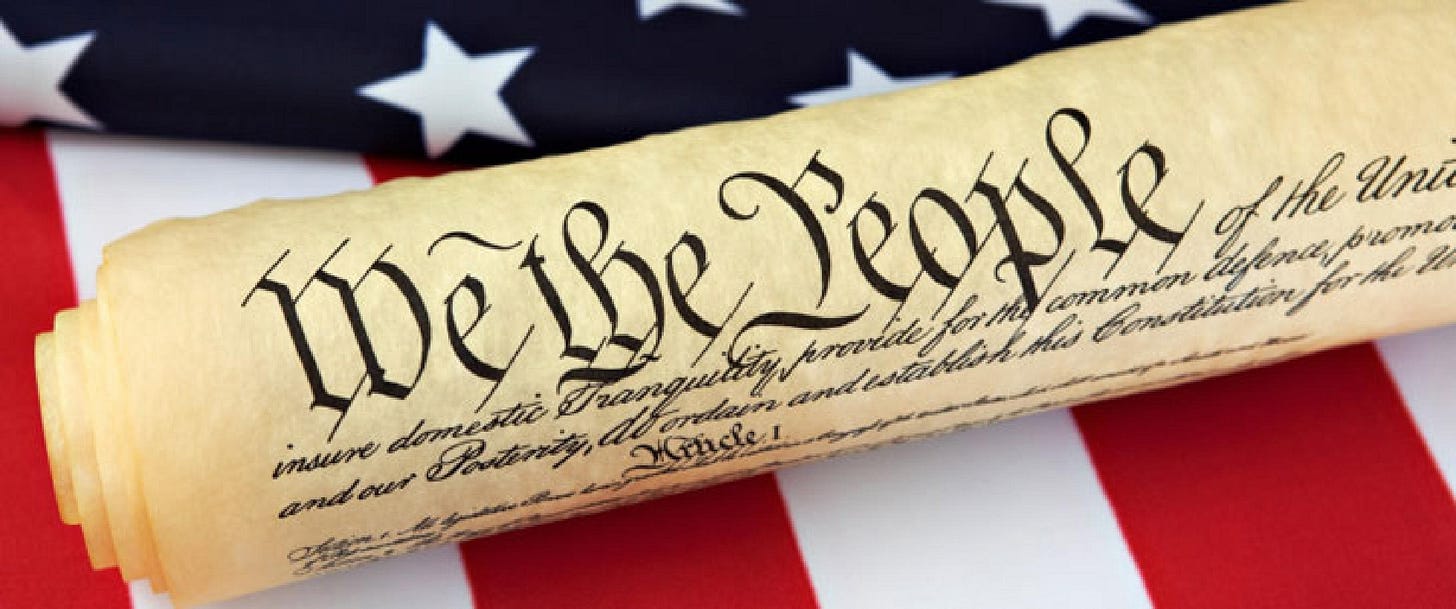 We the People of the Unit
insure domestic Tranquility, provide for the common defence, promo
and our Posterity, do ordain and establish this Constitution for the Un
Article. I.